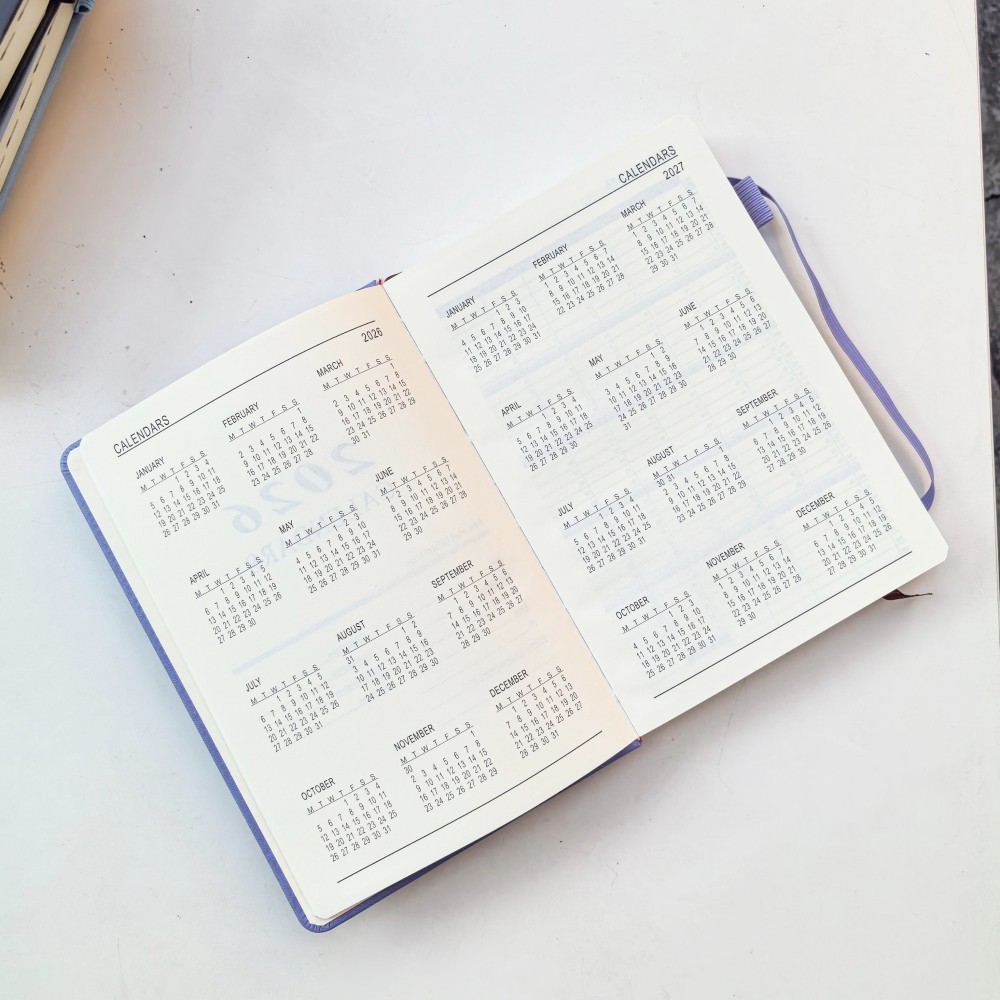 CALENDARS 2026
JANUARY
M T W T F S S
1 2 3 4
5 6 7 8 9 10 11
12 13 14 15 16 17 18
19 20 21 22 23 24 25
26 27 28 29 30 31
FEBRUARY
M T W T F S S
1
2 3 4 5 6 7 8
9 10 11 12 13 14 15
16 17 18 19 20 21 22
23 24 25 26 27 28
MARCH
M T W T F S S
1
2 3 4 5 6 7 8
9 10 11 12 13 14 15
16 17 18 19 20 21 22
23 24 25 26 27 28 29
30 31
APRIL
M T W T F S S
1 2 3 4 5
6 7 8 9 10 11 12
13 14 15 16 17 18 19
20 21 22 23 24 25 26
27 28 29 30
MAY
M T W T F S S
1 2 3
4 5 6 7 8 9 10
11 12 13 14 15 16 17
18 19 20 21 22 23 24
25 26 27 28 29 30 31
JUNE
M T W T F S S
1 2 3 4 5 6 7
8 9 10 11 12 13 14
15 16 17 18 19 20 21
22 23 24 25 26 27 28
29 30
JULY
M T W T F S S
1 2 3 4 5
6 7 8 9 10 11 12
13 14 15 16 17 18 19
20 21 22 23 24 25 26
27 28 29 30 31
AUGUST
M T W T F S S
31 1 2
3 4 5 6 7 8 9
10 11 12 13 14 15 16
17 18 19 20 21 22 23
24 25 26 27 28 29 30
SEPTEMBER
M T W T F S S
1 2 3 4 5 6
7 8 9 10 11 12 13
14 15 16 17 18 19 20
21 22 23 24 25 26 27
28 29 30
OCTOBER
M T W T F S S
1 2 3 4
5 6 7 8 9 10 11
12 13 14 15 16 17 18
19 20 21 22 23 24 25
26 27 28 29 30 31
NOVEMBER
M T W T F S S
30 1
2 3 4 5 6 7 8
9 10 11 12 13 14 15
16 17 18 19 20 21 22
23 24 25 26 27 28 29
DECEMBER
M T W T F S S
1 2 3 4 5 6
7 8 9 10 11 12 13
14 15 16 17 18 19 20
21 22 23 24 25 26 27
28 29 30 31
CALENDARS
2027
JANUARY
M T W T F S S
1 2 3
4 5 6 7 8 9 10
11 12 13 14 15 16 17
18 19 20 21 22 23 24
25 26 27 28 29 30 31
FEBRUARY
M T W T F S S
1 2 3 4 5 6 7
8 9 10 11 12 13 14
15 16 17 18 19 20 21
22 23 24 25 26 27 28
MARCH
M T W T F S S
1 2 3 4 5 6 7
8 9 10 11 12 13 14
15 16 17 18 19 20 21
22 23 24 25 26 27 28
29 30 31
APRIL
M T W T F S S
1 2 3 4
5 6 7 8 9 10 11
12 13 14 15 16 17 18
19 20 21 22 23 24 25
26 27 28 29 30
MAY
M T W T F S S
1 2
3 4 5 6 7 8 9
10 11 12 13 14 15 16
17 18 19 20 21 22 23
24 25 26 27 28 29 30
31
JUNE
M T W T F S S
1 2 3 4 5 6
7 8 9 10 11 12 13
14 15 16 17 18 19 20
21 22 23 24 25 26 27
28 29 30
JULY
M T W T F S S
1 2 3 4
5 6 7 8 9 10 11
12 13 14 15 16 17 18
19 20 21 22 23 24 25
26 27 28 29 30 31
AUGUST
M T W T F S S
30 31 1
2 3 4 5 6 7 8
9 10 11 12 13 14 15
16 17 18 19 20 21 22
23 24 25 26 27 28 29
SEPTEMBER
M T W T F S S
1 2 3 4 5
6 7 8 9 10 11 12
13 14 15 16 17 18 19
20 21 22 23 24 25 26
27 28 29 30
OCTOBER
M T W T F S S
1 2 3
4 5 6 7 8 9 10
11 12 13 14 15 16 17
18 19 20 21 22 23 24
25 26 27 28 29 30 31
NOVEMBER
M T W T F S S
1 2 3 4 5 6 7
8 9 10 11 12 13 14
15 16 17 18 19 20 21
22 23 24 25 26 27 28
29 30
DECEMBER
M T W T F S S
1 2 3 4 5
6 7 8 9 10 11 12
13 14 15 16 17 18 19
20 21 22 23 24 25 26
27 28 29 30 31